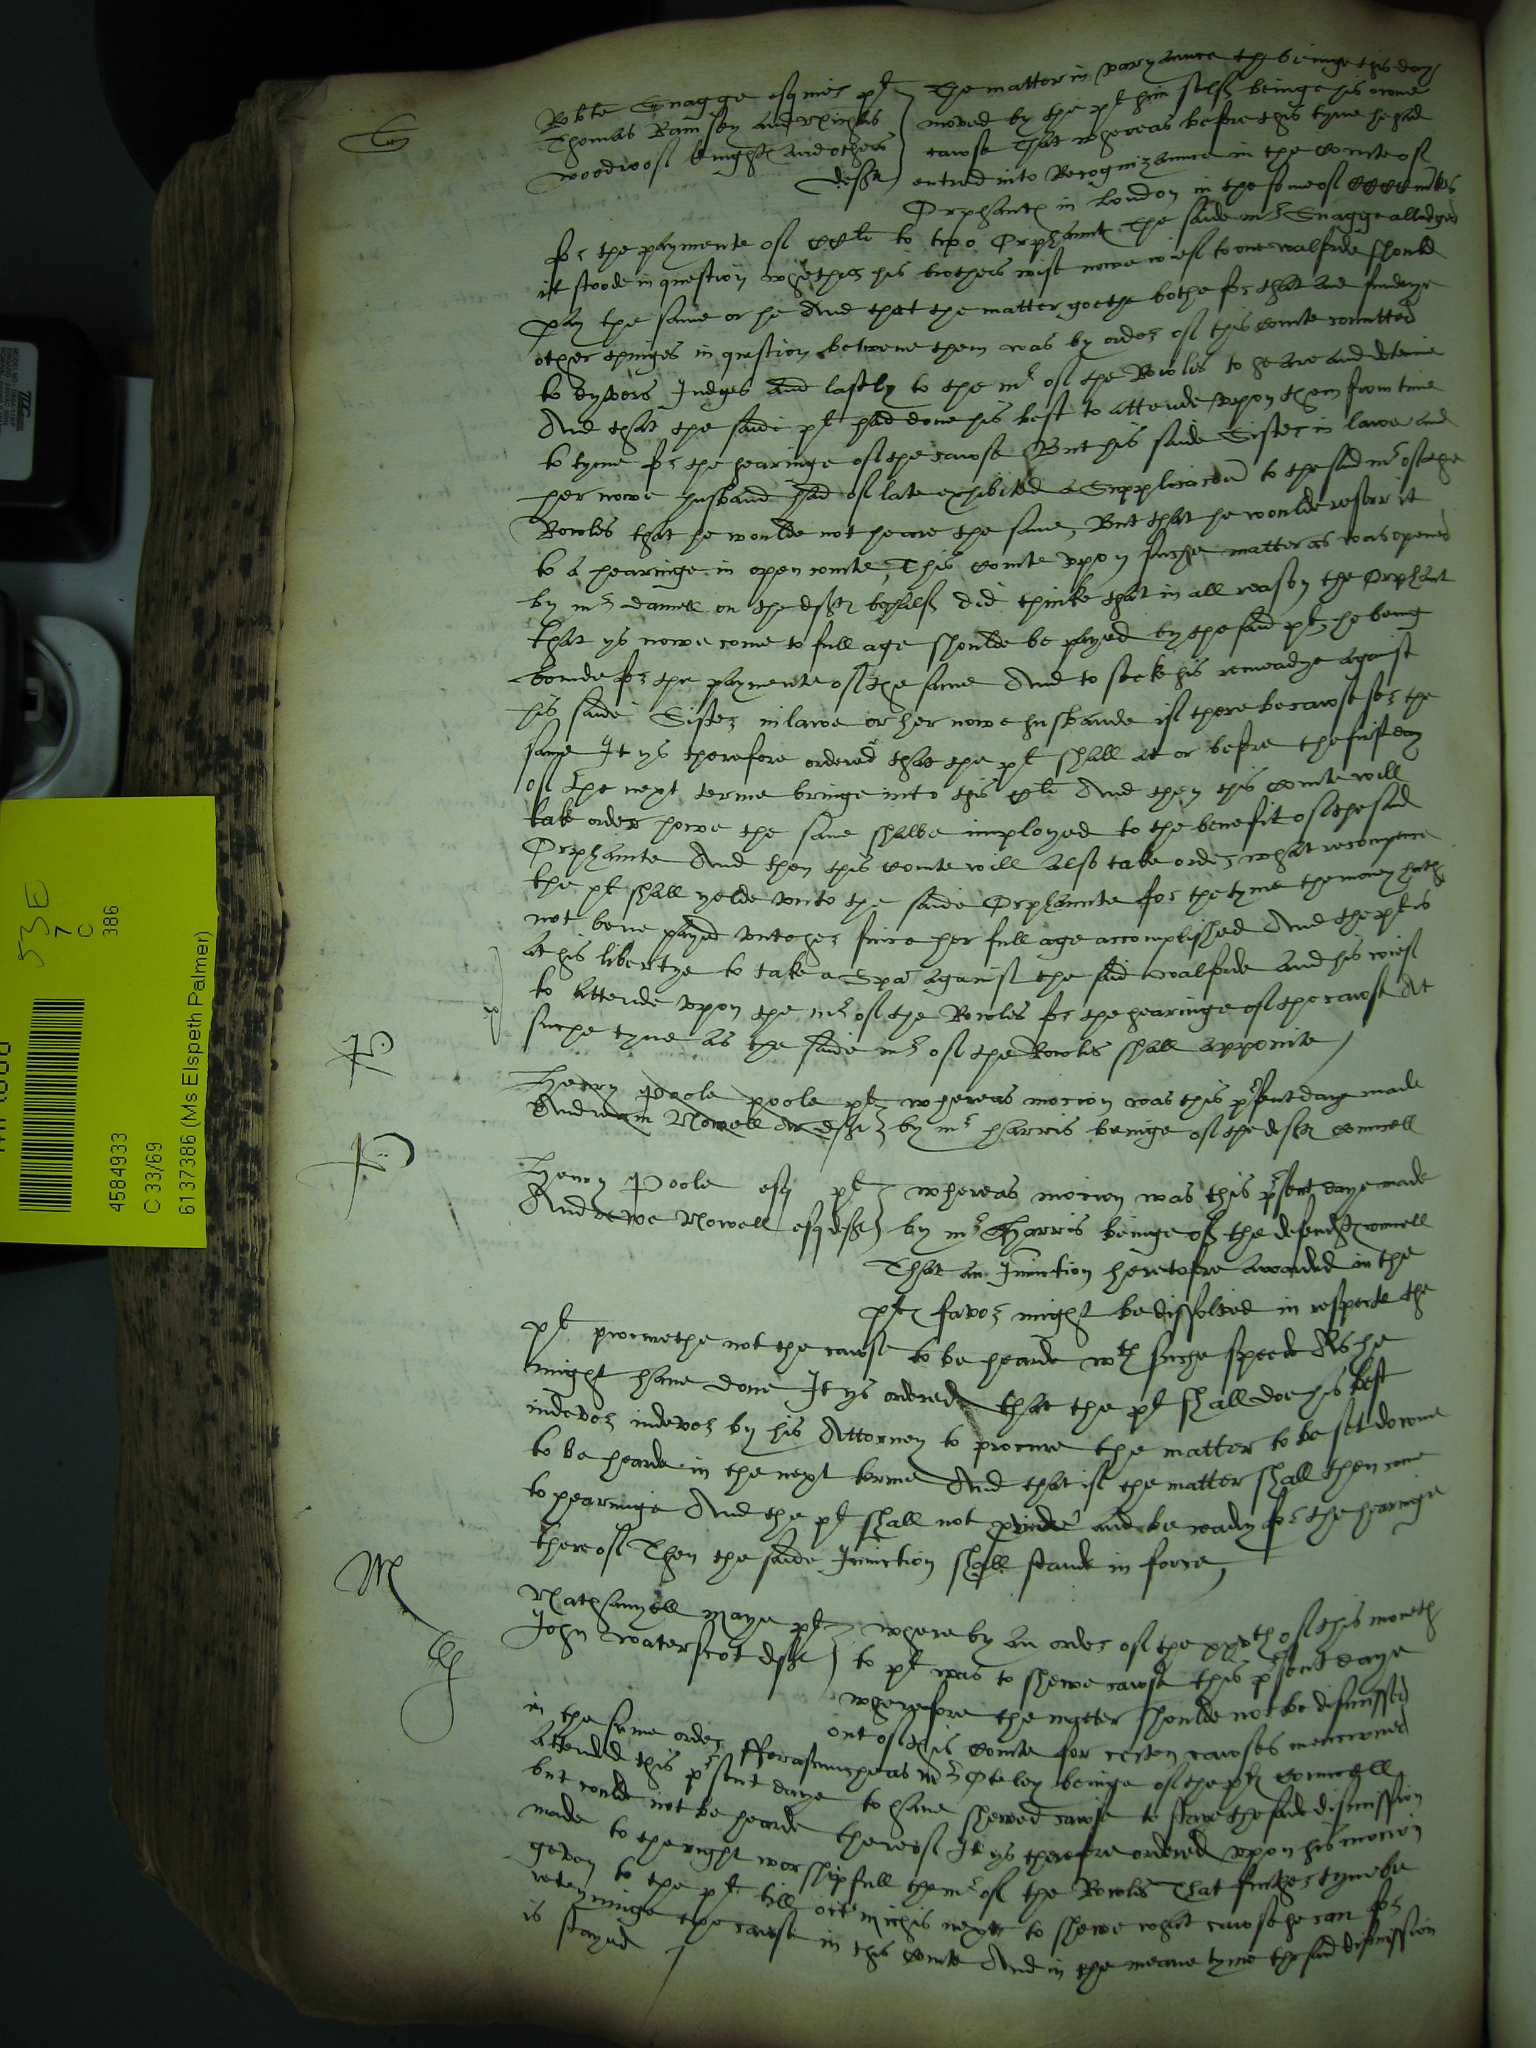 Robte Snagge esquier plt
Thomas Ramsey and Nichas
woodroof knightes and others
defts
The matter in varyaunce beinge this day
moved by the plt him self beinge his owne
cawse That whereas before this tyme he had
entred into Recognizaunce in the courte of
Orphantes in London in the some of markes
for the paymente of ccli to two Orphants The saide mr Snagge alledged
it stoode in question whether his brothers wief nowe wief to one walforde should
pay the same or he And that the matter goethe bothe for that and sundrye
other thinges in question betwene them was by order of this courte comitted
to dyvers Judges and lastly to the mr of the Rowles to heare and determine
And that the saide plt had done his best to attende vpon them from time
to tyme for the hearinge of the cawse But his saide Sister in lawe and
her nowe husband had of late exhibited a Supplicacion to the said mr of the
Rowles that he woulde not heare the same, But that he woulde referr it
to a hearinge in open courte, This courte vpon suche matter as was opened
by mr damsell on the defts behalf did thinke that in all reason the Orphant
that ys nowe come to full age shoulde be payed by the said plt, he being
bounde for the paymente of the same And to seeke his remeadye against
his saide Sister in lawe or her nowe husbande if there be cawse for the
same It ys therefore ordered that the plt shall at or before the first day
of the next terme bringe into this cli And then this courte will
take order howe the same shalbe imployed to the benefit of the said
Orphante And then this courte will also take order what recompence
the plt shall yelde vnto the saide Orphaunte for the tyme the money hath
not bene payed vnto her since her full age accomplished And the plt is
at his libertye to take a Spa against the said walforde and his wief
to attende vpon the mr of the Rowles for the hearinge of the cawse At
suche tyme as the saide mr of the Rowles shall appointe /
Henry Poole poole plt
Andrewe Nowell ar deft
whereas mocion was this psent daye made
by mr harris beinge of the defts councell
Henry Poole esq plt
Andrewe Nowell esq deft
whereas mocion was this psent daye made
by mr Harris beinge of the defendts councell
That an Iniunction heretofore awarded in the
plts favor might be dissolved in respecte the
plt procurethe not the cawse to be hearde wth suche speede As he
might have done It ys ordered that the plt shall doe his best
indevor indevor by his Attorney to procure the matter to be set downe
to be hearde in the next terme And that if the matter shall then come
to hearinge And the plt shall not and be ready for the hearinge
thereof Then the saide Iniunction shall stande in force /
M
Nathanyell maye plt
John waterscot deft
where by an order of the xxvth of this moneth
to plt was to shewe cawse this psent daye
wherefore the matter shoulde not be dismissed
out of this courte for certen cawses mencioned
in the same order fforasmuche as mr Oteley beinge of the plts councell
attended this psent daye to have shewed cawse to staye the saide dismission
but coulde not be hearde thereof It ys therefore ordered vpon his mocion
made to the right worshipfull the mr of the Rowles That further tyme be
geven to the plt till octis michis next to shewe what cawse he can for
reteyninge the cawse in this courte And in the meane tyme the said dismission
is stayed /
53E
7
C
386
4584933
C 33/69
6137386 (Ms Elspeth Palmer)